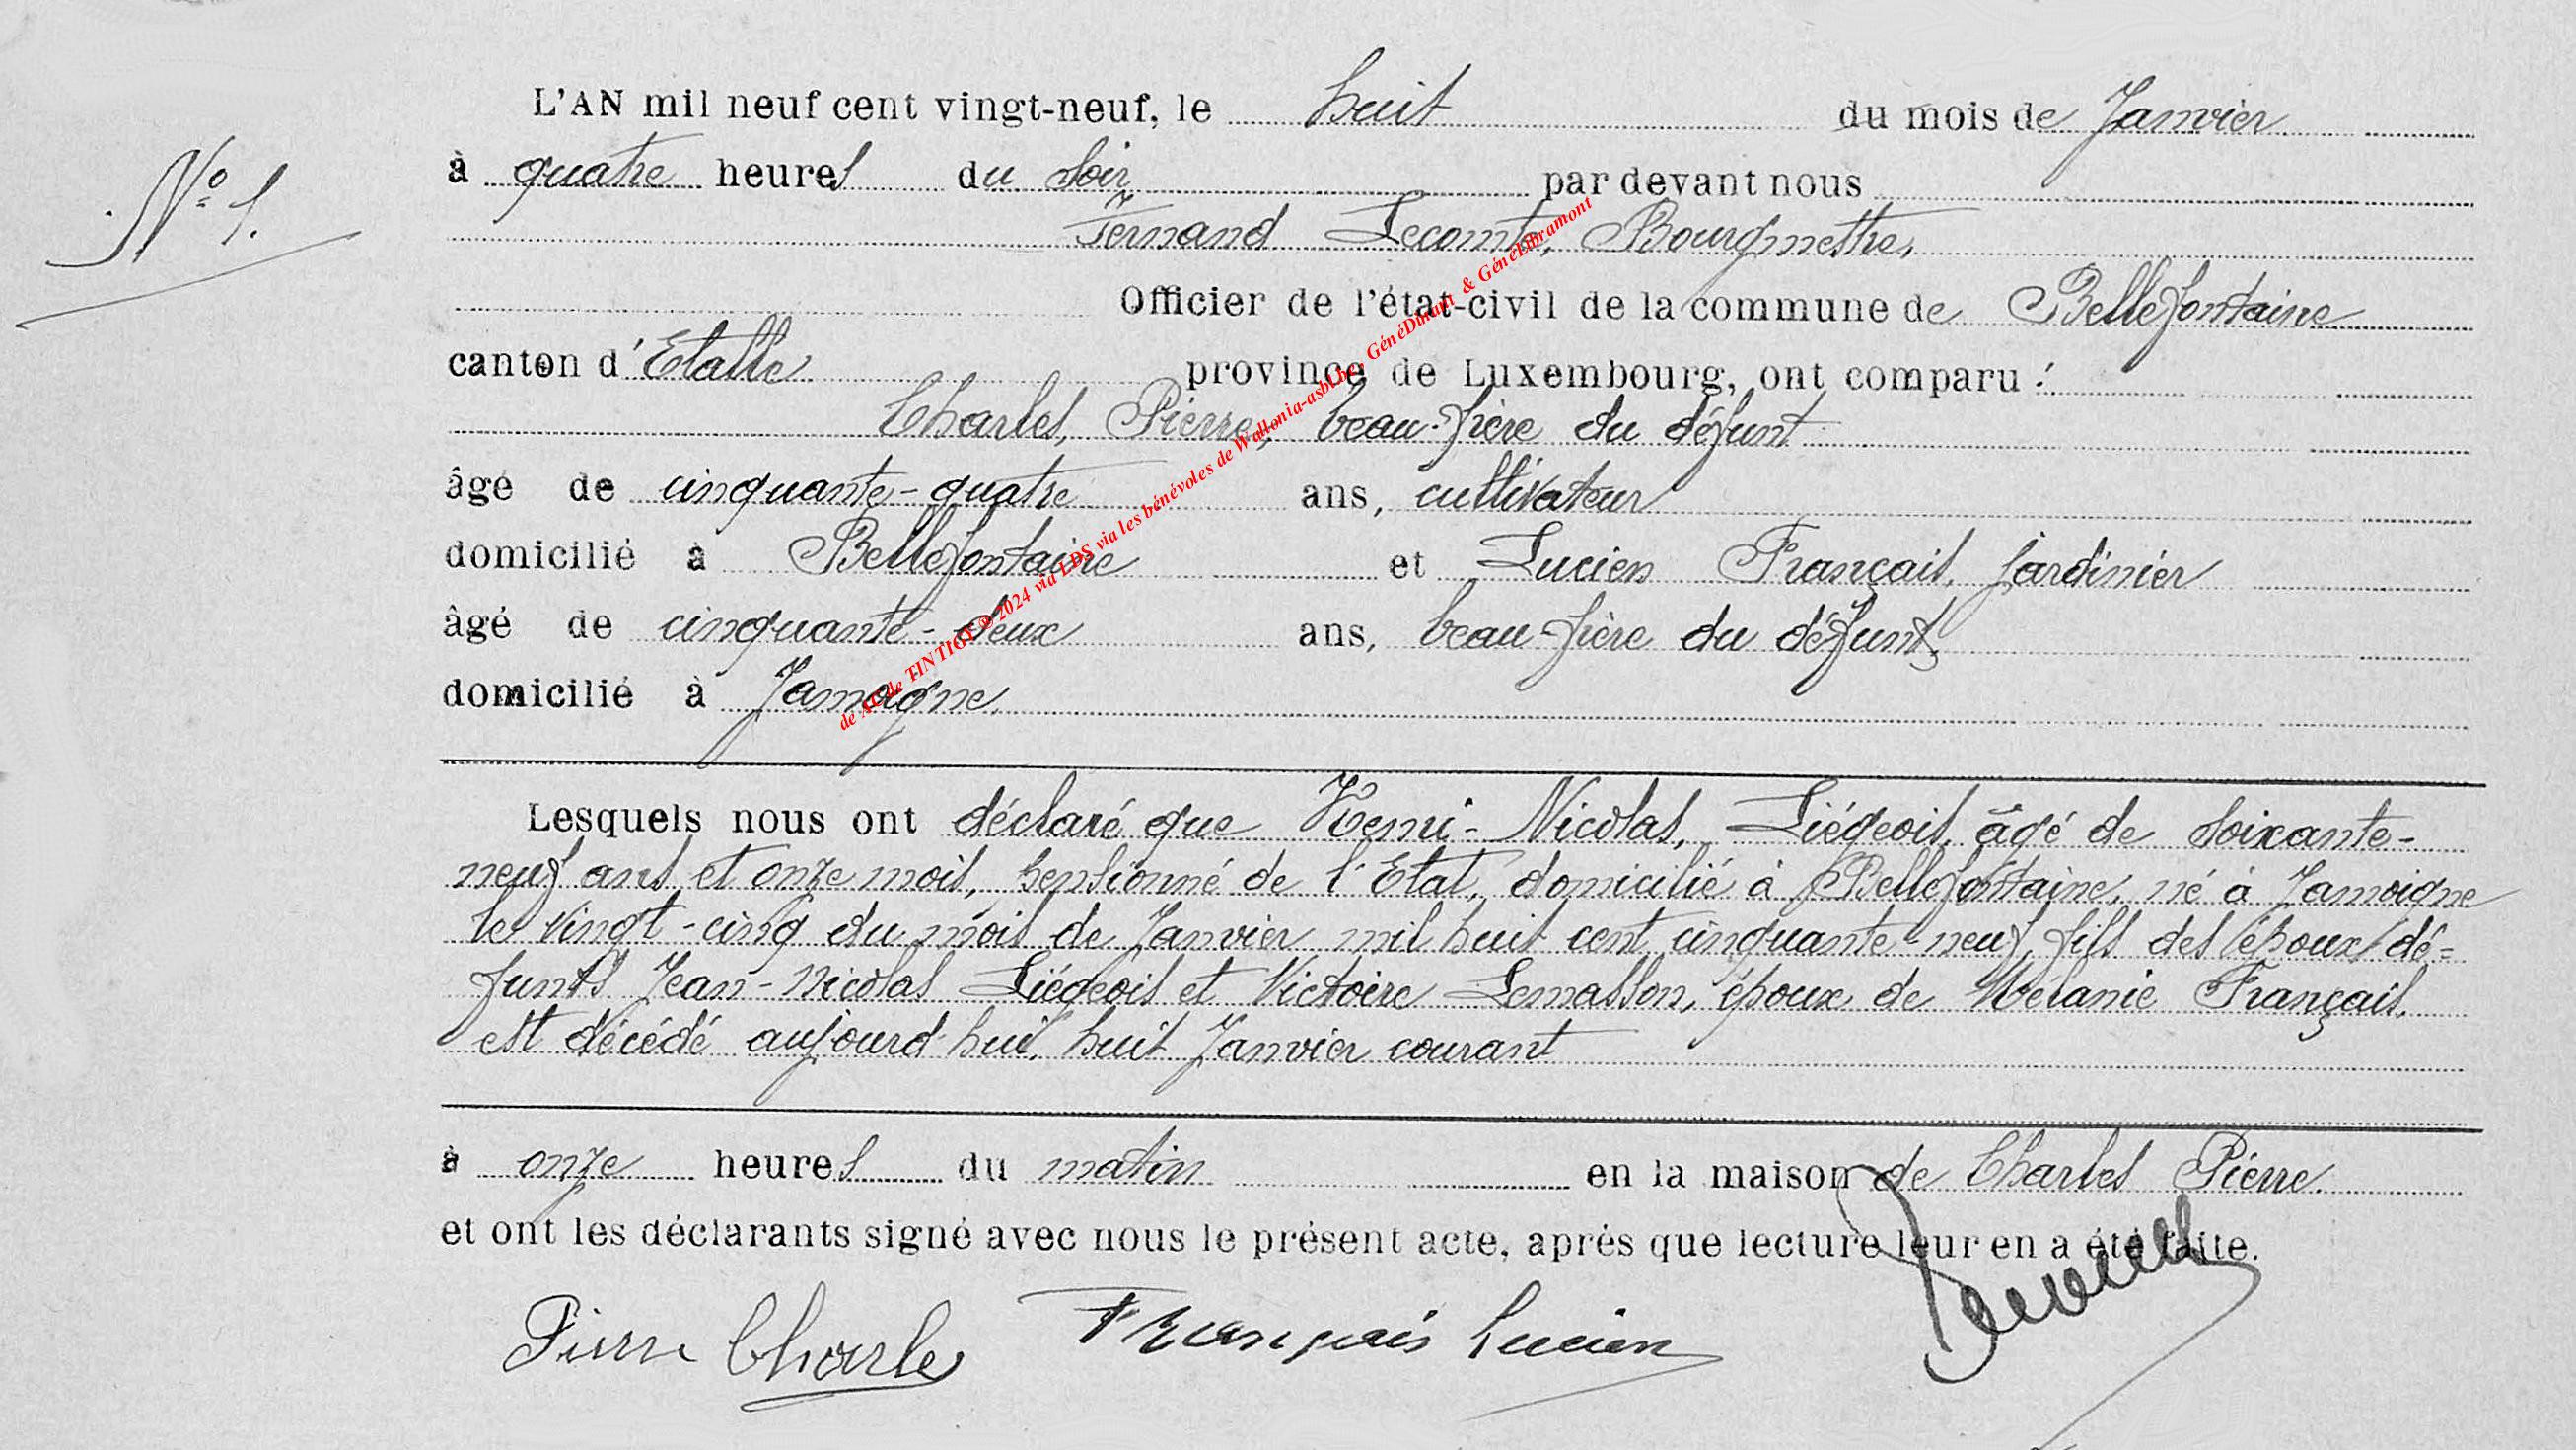 L'AN mil neuf cent vingt-neuf, le huit du mois de Janvier
N° 1.
à quatre heures du soir par devant nous
Fernand Lecomte, Bourgmestre,
Officier de l'état-civil de la commune de Bellefontaine
canton d'Etalle province de Luxembourg, ont comparu :
Charles, Pierre, beau-frère du défunt
âgé de cinquante-quatre ans, cultivateur
domicilié à Bellefontaine et Lucien Français, jardinier
âgé de cinquante-deux ans, beau-frère du défunt,
domicilié à Jamogne,
Lesquels nous ont déclaré que Henri-Nicolas, Liégeois, âgé de soixante-
neuf ans et onze mois, pensionné de l'Etat, domicilié à Bellefontaine, né à Jamoigne
le vingt-cinq du mois de Janvier mil huit cent cinquante-neuf, fils des époux dé=
funts Jean-Nicolas Liégeois et Victoire Lemasson, époux de Mélanie Français,
est décédé aujourd'hui, huit Janvier courant
à onze heures du matin en la maison de Charles Pierre.
et ont les déclarants signé avec nous le présent acte, après que lecture leur en a été faite.
Pierre Charles Français Lucien
de AC de TINTIGNY © 2024 via LDS via les bénévoles de Wallonia-asbl.be, GénéDinant & GénéLibramont